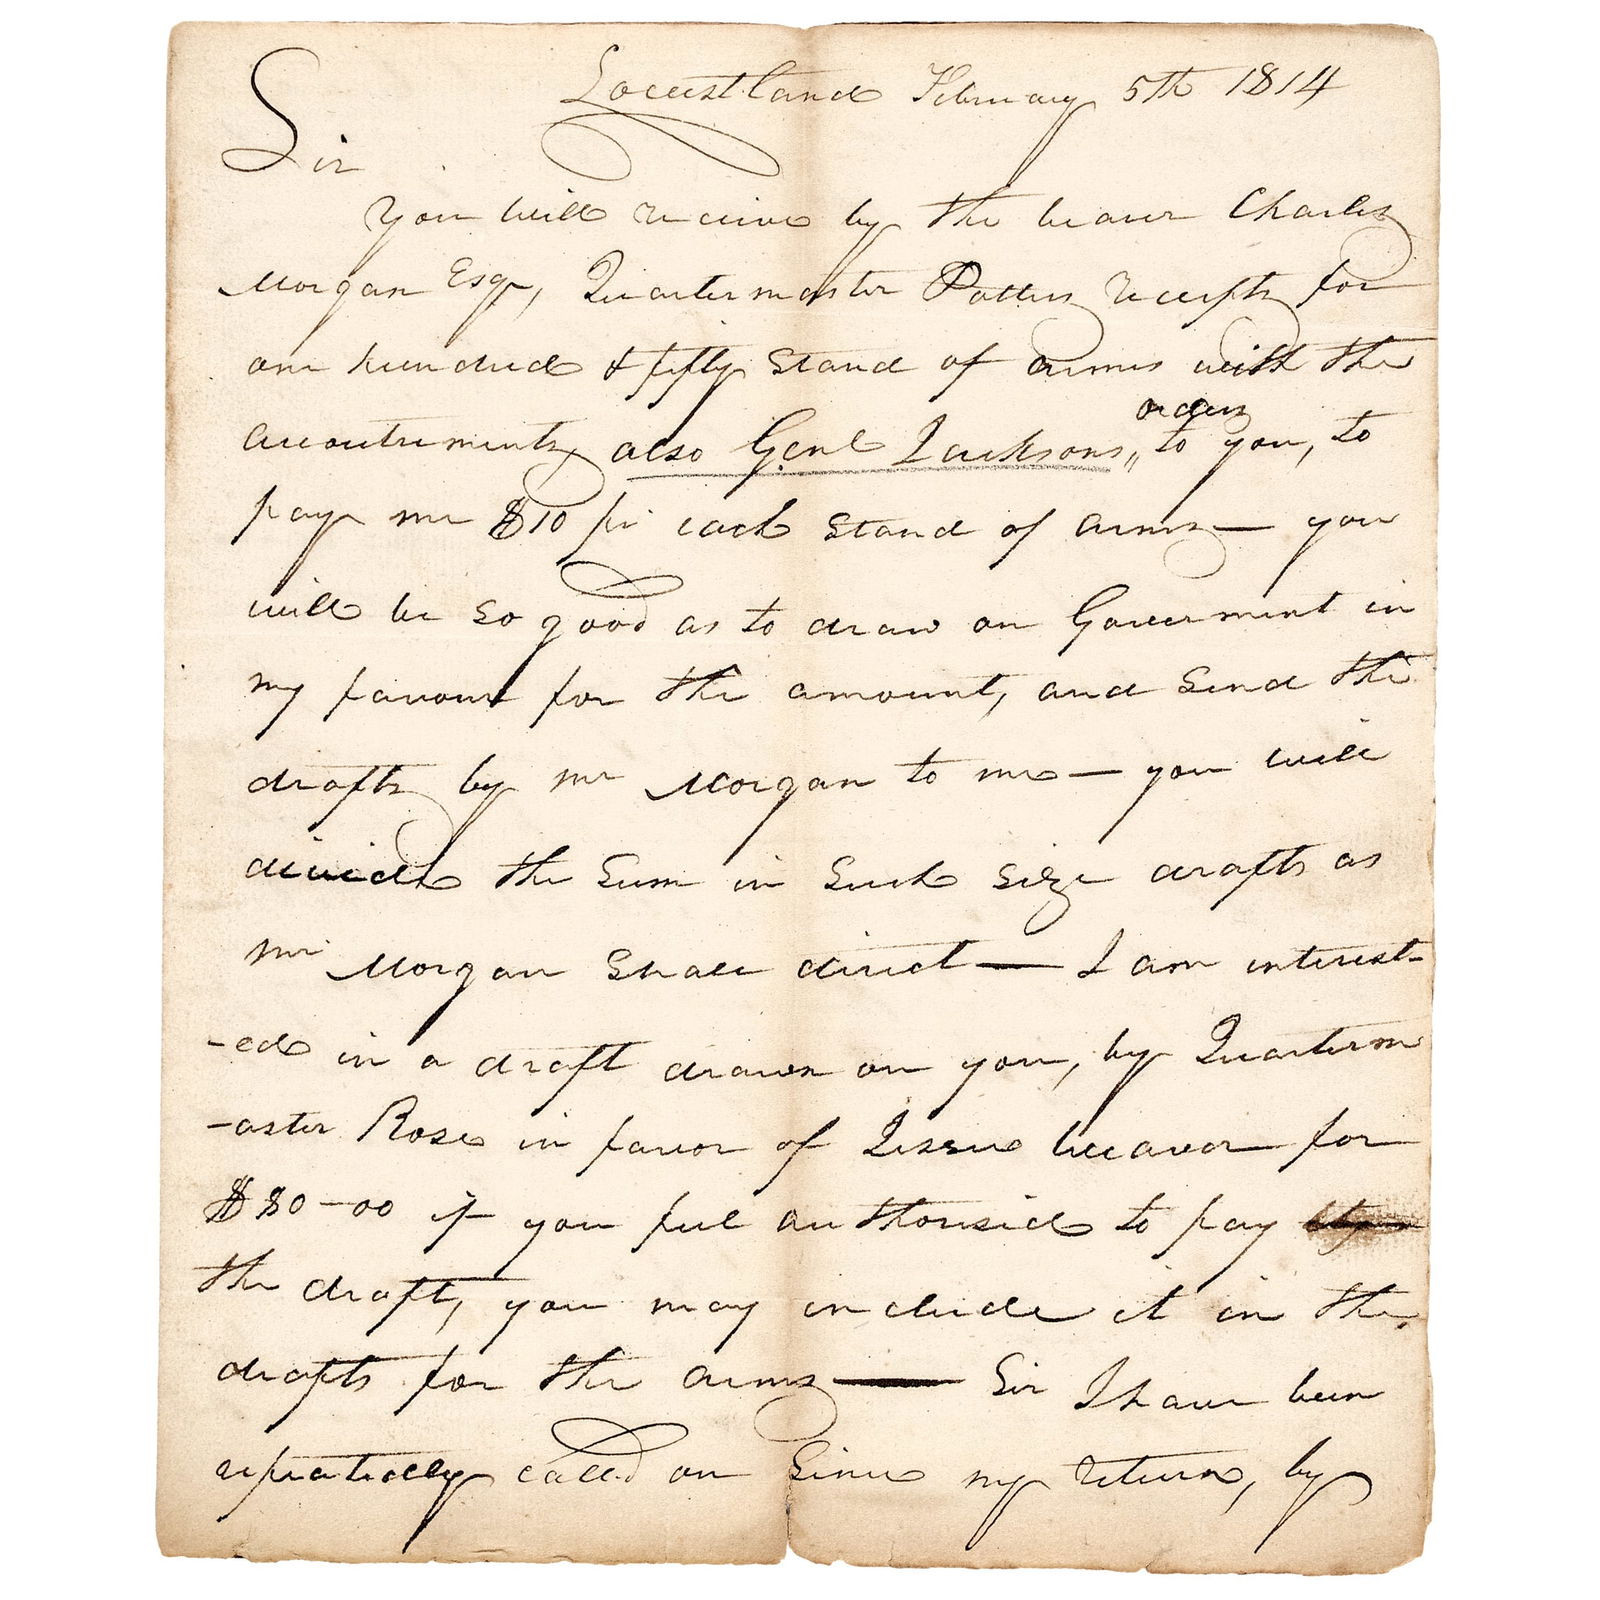 Locustland February 5th 1814
Sir
You will receive by the bearer Charles
Morgan Esqr, Quartermaster Potters receipts for
one hundred & fifty Stand of arms with the
accoutrements, also Genl Jacksons,, orders to you, to
pay me $10 pr each Stand of arms — you
will be So good as to draw on Goverment in
my favour for the amount, and Send the
drafts by mr Morgan to me — you will
divide the Sum in Such Size drafts as
mr Morgan Shall direct — I am interest-
-ed in a draft drawn on you, by Quarterm
-aster Rose in favor of Jessee beavor for
$80-00 if you feel authorised to pay
the draft, you may include it in the
drafts for the arms — Sir I have been
repeatedly called on Since my return, by